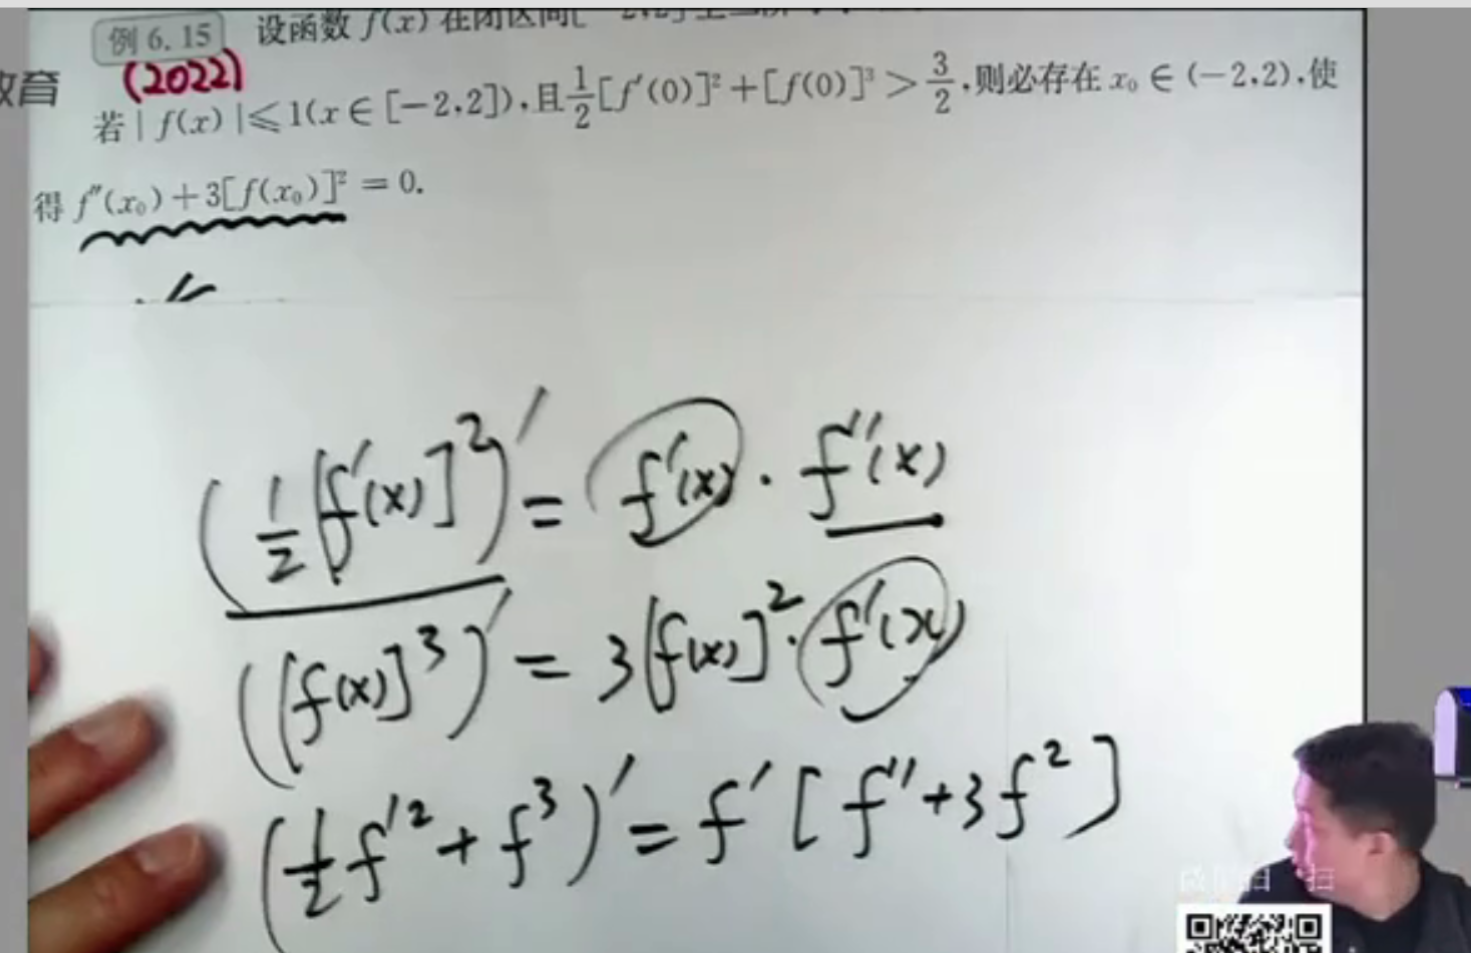 例 6.15 设函数 f(x) 在闭区间[-2,2]上二阶
(2022)
教育
若 | f(x) |⩽1(x∈[-2,2]),且\frac{1}{2}[f′(0)]²+[f(0)]³>\frac{3}{2},则必存在 x₀∈(-2,2),使
得 f″(x₀)+3[f(x₀)]²=0.
(\frac{1}{2}[f′(x)]²)′=f′(x)·f″(x)
([f(x)]³)′=3[f(x)]²·f′(x)
(\frac{1}{2}f′²+f³)′=f′[f″+3f²]
扫 扫